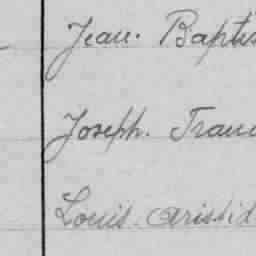 Jean. Baptis
Joseph. Franc
Louis. Aristid